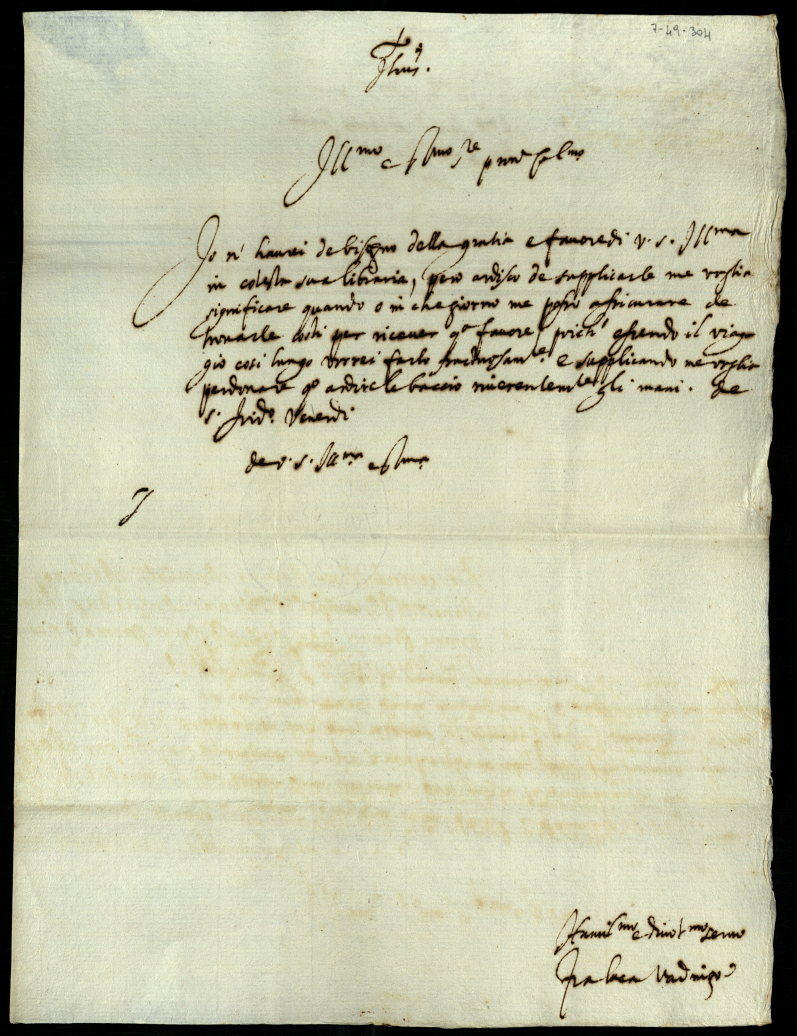 7-49-304
Jhus.
Ill.mo e R.mo S.re pron col.mo
Io ni haurei de bisogno della gratia e favore di V. S. Ill.ma
in cotesta sua libraria, pero ardisco de supplicarle me voglia
significare quando o in che giorno me posso assicurare de
trovarle costi per ricever q.o favore, perche essendo il viag-
gio cosi lungo vorrei farlo fructuosam.te e supplicando me voglia
perdonare q.o ardire le baccio riverentem.te gli mani. De
S. Isid.o Venerdi
de V. S. Ill.ma e R.ma
Humil.mo e divot.mo servo
fra Luca